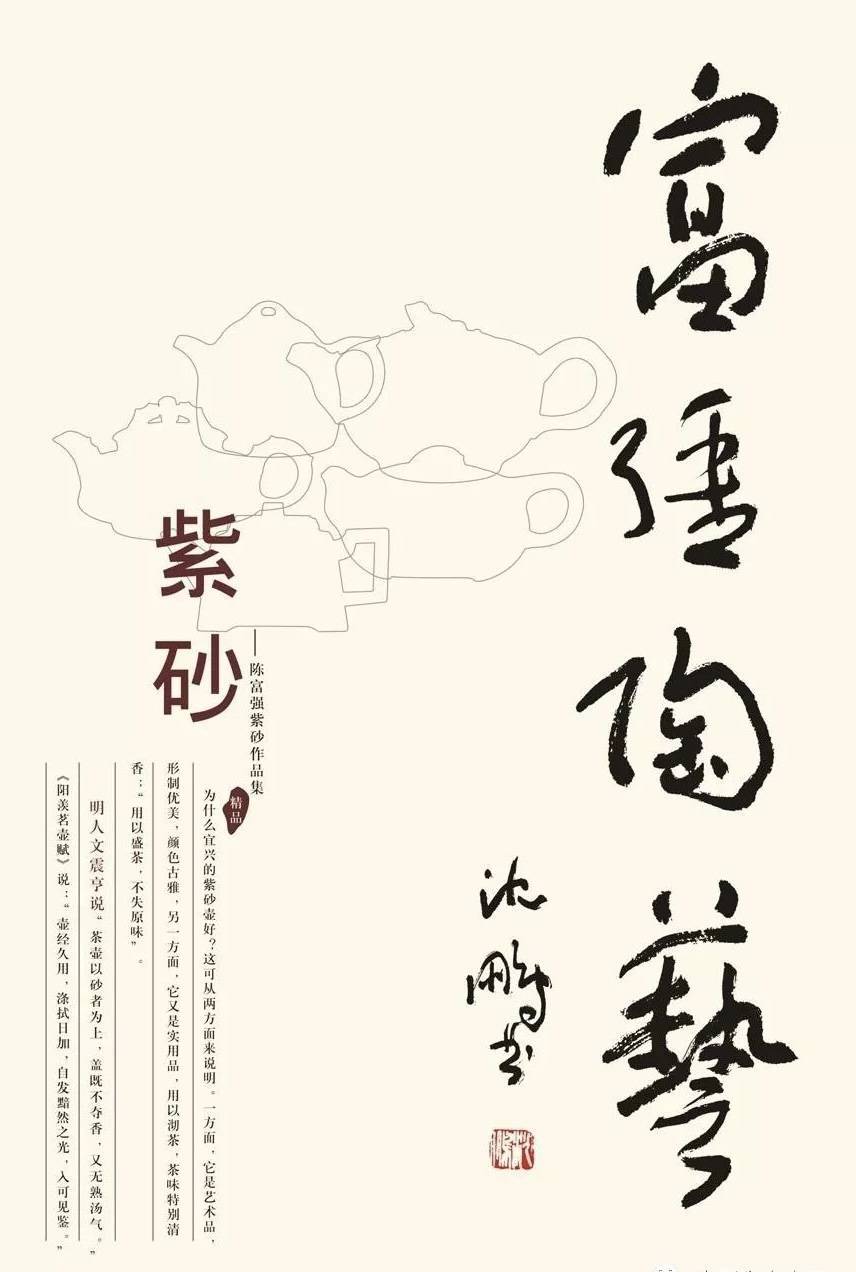 富强陶藝
沈鹏书
紫砂
——陈富强紫砂作品集
精品
为什么宜兴的紫砂壶好？这可从两方面来说明。一方面，它是艺术品，
形制优美，颜色古雅，另一方面，它又是实用品，用以沏茶，茶味特别清
香；“用以盛茶，不失原味”。
明人文震亨说“茶壶以砂者为上，盖既不夺香，又无熟汤气。”
《阳羡茗壶赋》说：“壶经久用，涤拭日加，自发黯然之光，入可见鉴。”